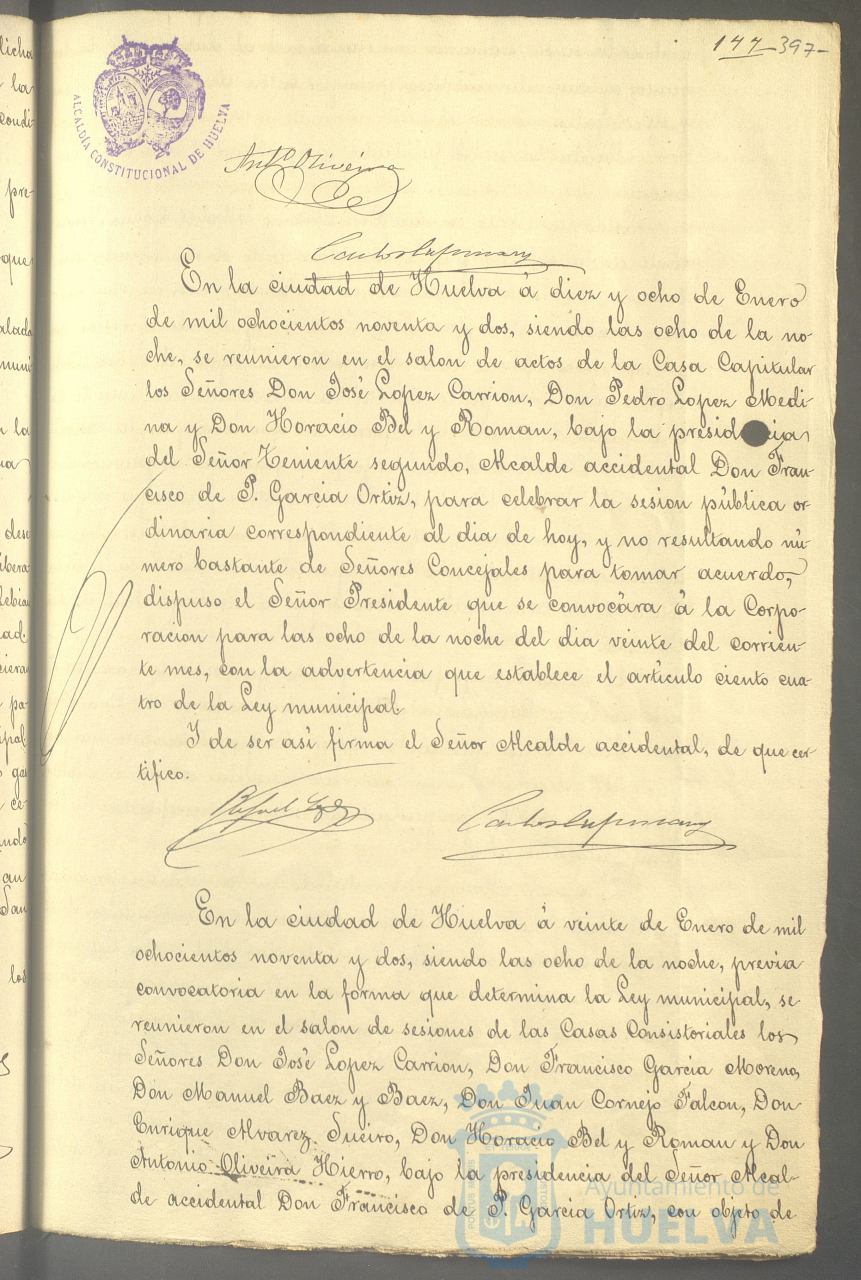 147 397-
ALCALDÍA CONSTITUCIONAL DE HUELVA
Antº Oliveira
En la ciudad de Huelva á diez y ocho de Enero
de mil ochocientos noventa y dos, siendo las ocho de la no-
che, se reunieron en el salon de actos de la Casa Capitular
los Señores Don José Lopez Carrion, Don Pedro Lopez Medi-
na y Don Horacio Bel y Roman, bajo la presid cia
del Señor Teniente segundo, Alcalde accidental Don Fran-
cisco de P. Garcia Ortiz, para celebrar la sesion pública or-
dinaria correspondiente al dia de hoy, y no resultando nú-
mero bastante de Señores Concejales para tomar acuerdo,
dispuso el Señor Presidente que se convocára á la Corpo-
racion para las ocho de la noche del dia veinte del corrien-
te mes, con la advertencia que establece el artículo ciento cua-
tro de la Ley municipal.
Y de ser así firma el Señor Alcalde accidental, de que cer-
tifico.
En la ciudad de Huelva á veinte de Enero de mil
ochocientos noventa y dos, siendo las ocho de la noche, previa
convocatoria en la forma que determina la Ley municipal, se
reunieron en el salon de sesiones de las Casas Consistoriales los
Señores Don José Lopez Carrion, Don Francisco Garcia Moreno,
Don Manuel Baez y Baez, Don Juan Cornejo Falcon, Don
Enrique Alvarez Sueiro, Don Horacio Bel y Roman y Don
Antonio Oliveira Hierro, bajo la presidencia del Señor Alcal-
de accidental Don Francisco de P. Garcia Ortiz, con objeto de
Ayuntamiento de
HUELVA